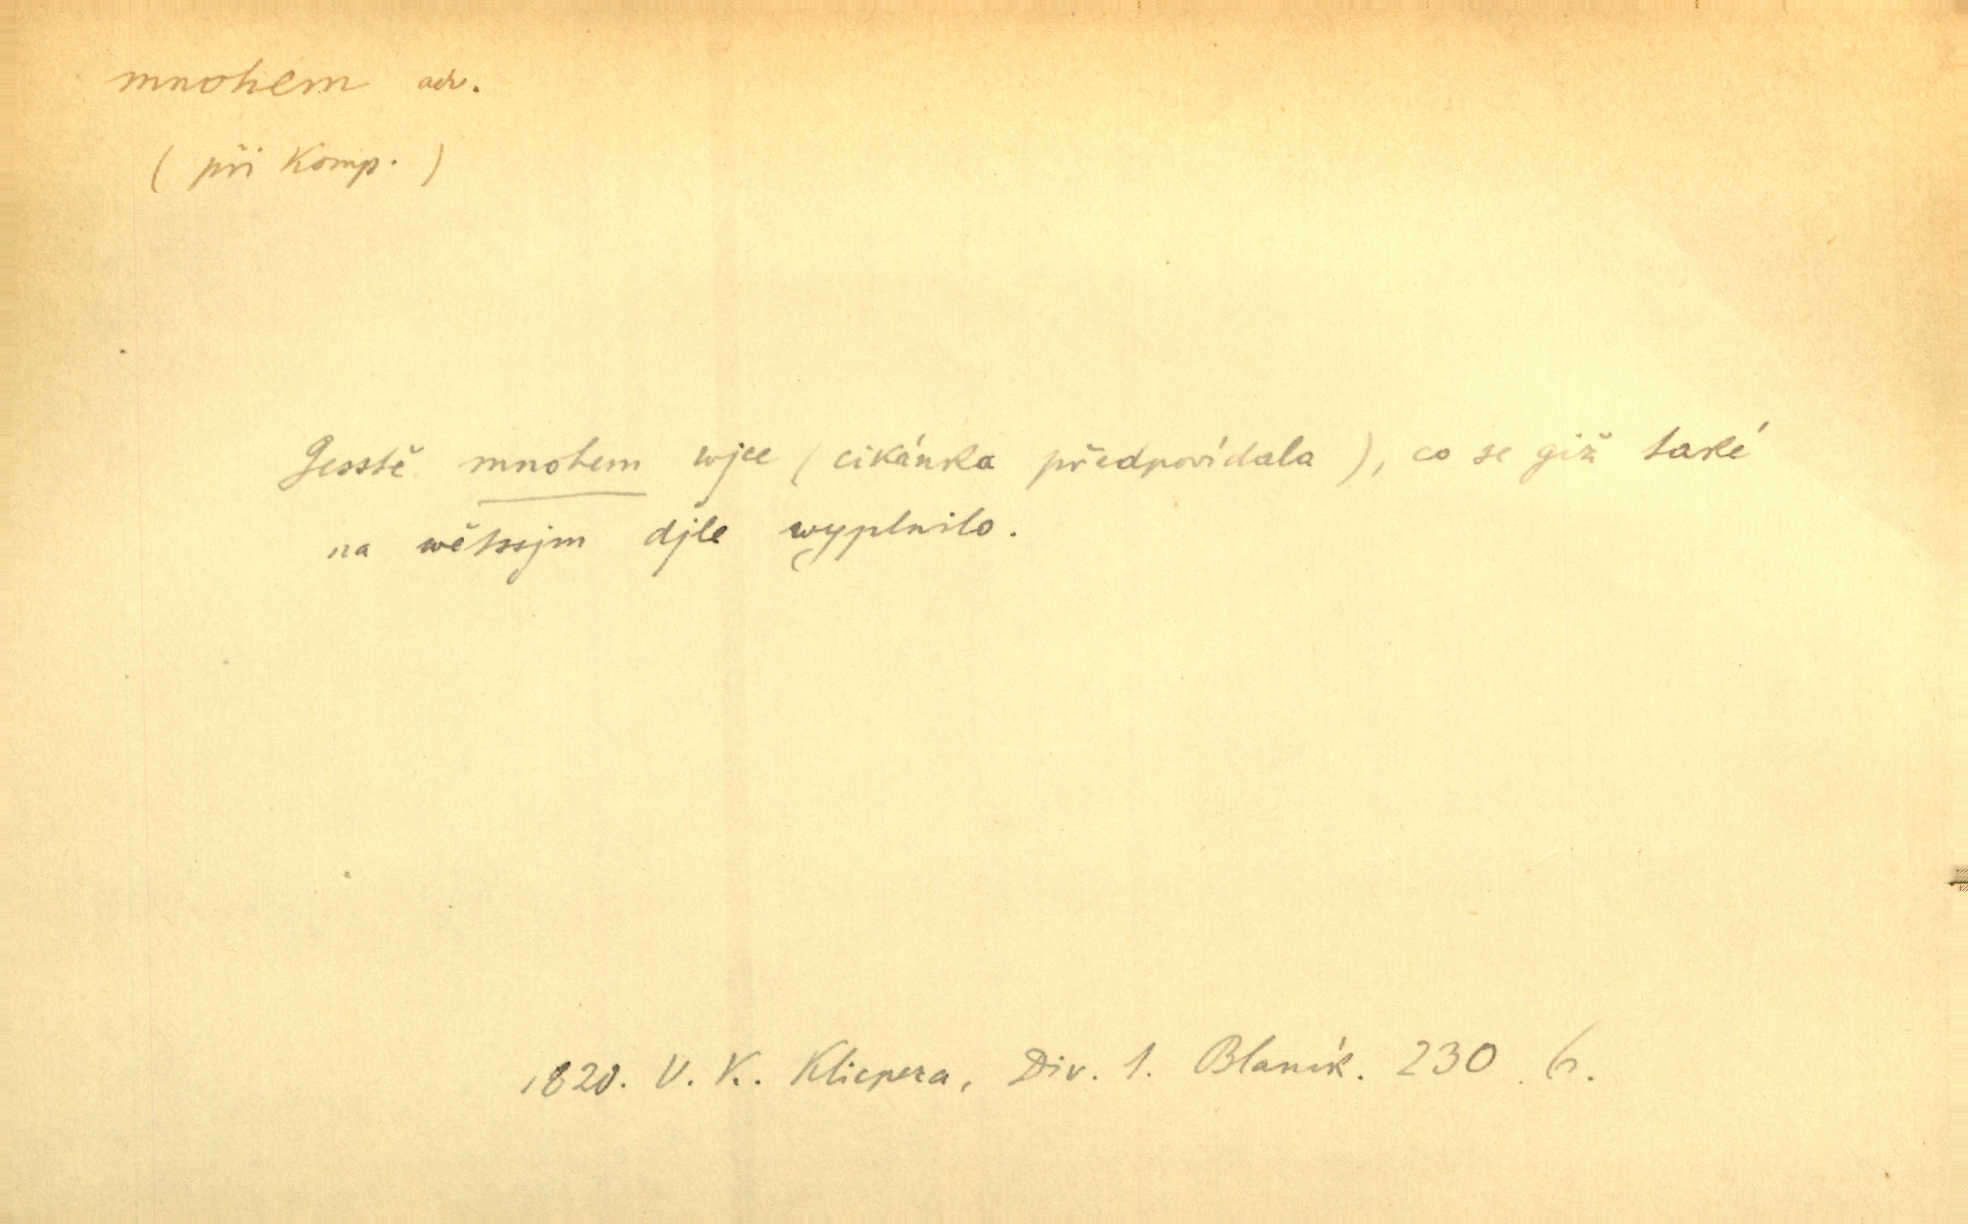 mnohem adv.
( při Komp. )
Gesstě mnohem wjce ( cikánka předpovídala ), co se giž také
na wětssjm djle wyplnilo.
1820. V. K. Klicpera, Div. 1. Blaník. 230